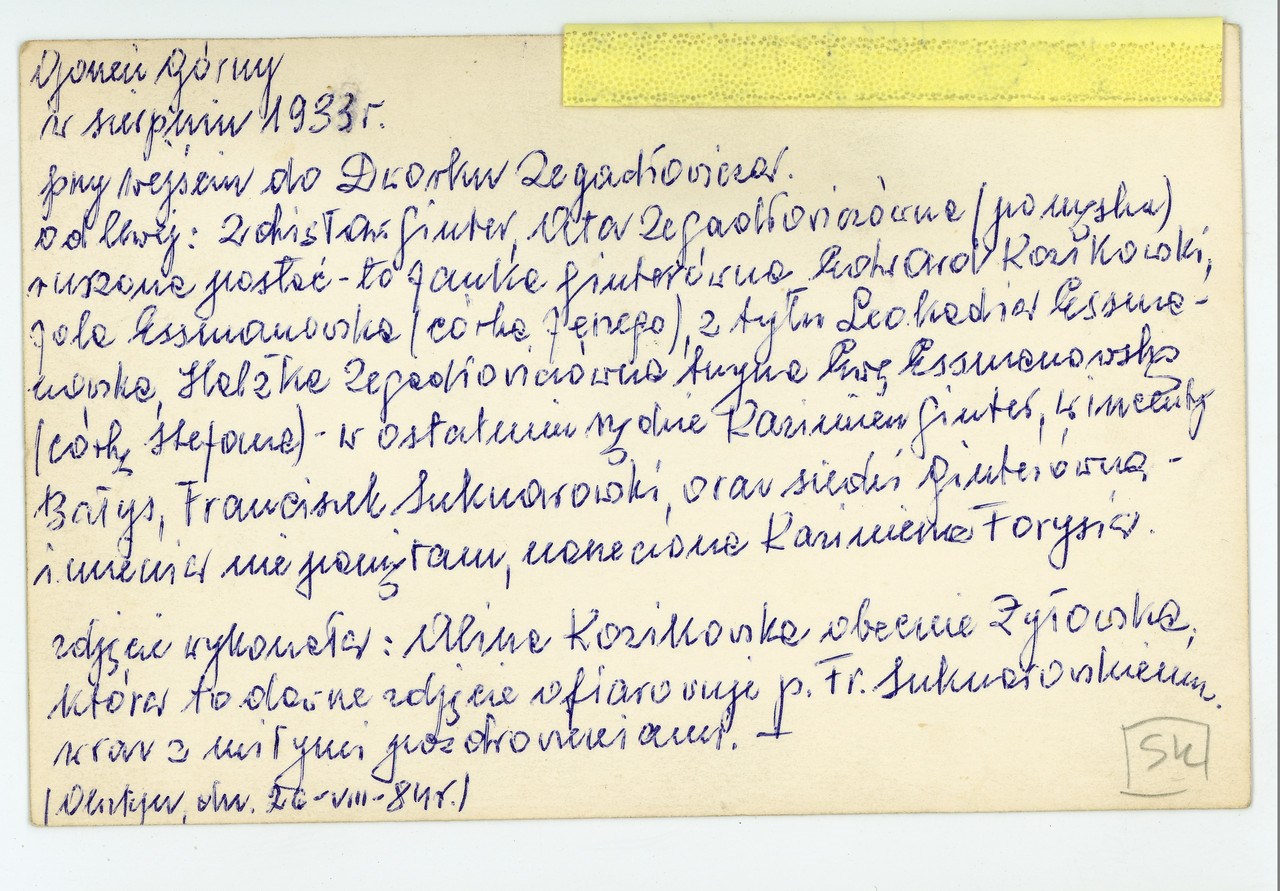 Goreń Górny
w sierpniu 1933 r.
przy wejściu do Dworku Zegadłowicza.
od lewej: Zdzisław Ginter, Atta Zegadłowiczówna (pomyłka)
ruszona postać - to Janka Ginterówna Edward Kozikowski,
Jola Essmanowska (córka Jerzego), z tyłu Leokadia Essma-
nowska, Halżka Zegadłowiczówna trzyma Ewę Essmanowską
(córkę Stefana) - w ostatnim rzędzie Kazimierz Ginter, Wincenty
Bałys, Franciszek Suknarowski, oraz siedzi Ginterówna -
imienia nie pamiętam, narzeczona Kazimierza Forysia.
zdjęcie wykonała: Alina Kozikowska obecnie Żyłowska,
która to dawne zdjęcie ofiarowuje p. Fr. Suknarowskiemu.
wraz z miłymi pozdrowieniami. —
(Olsztyn, dn. 26-VIII-84 r.)
SK